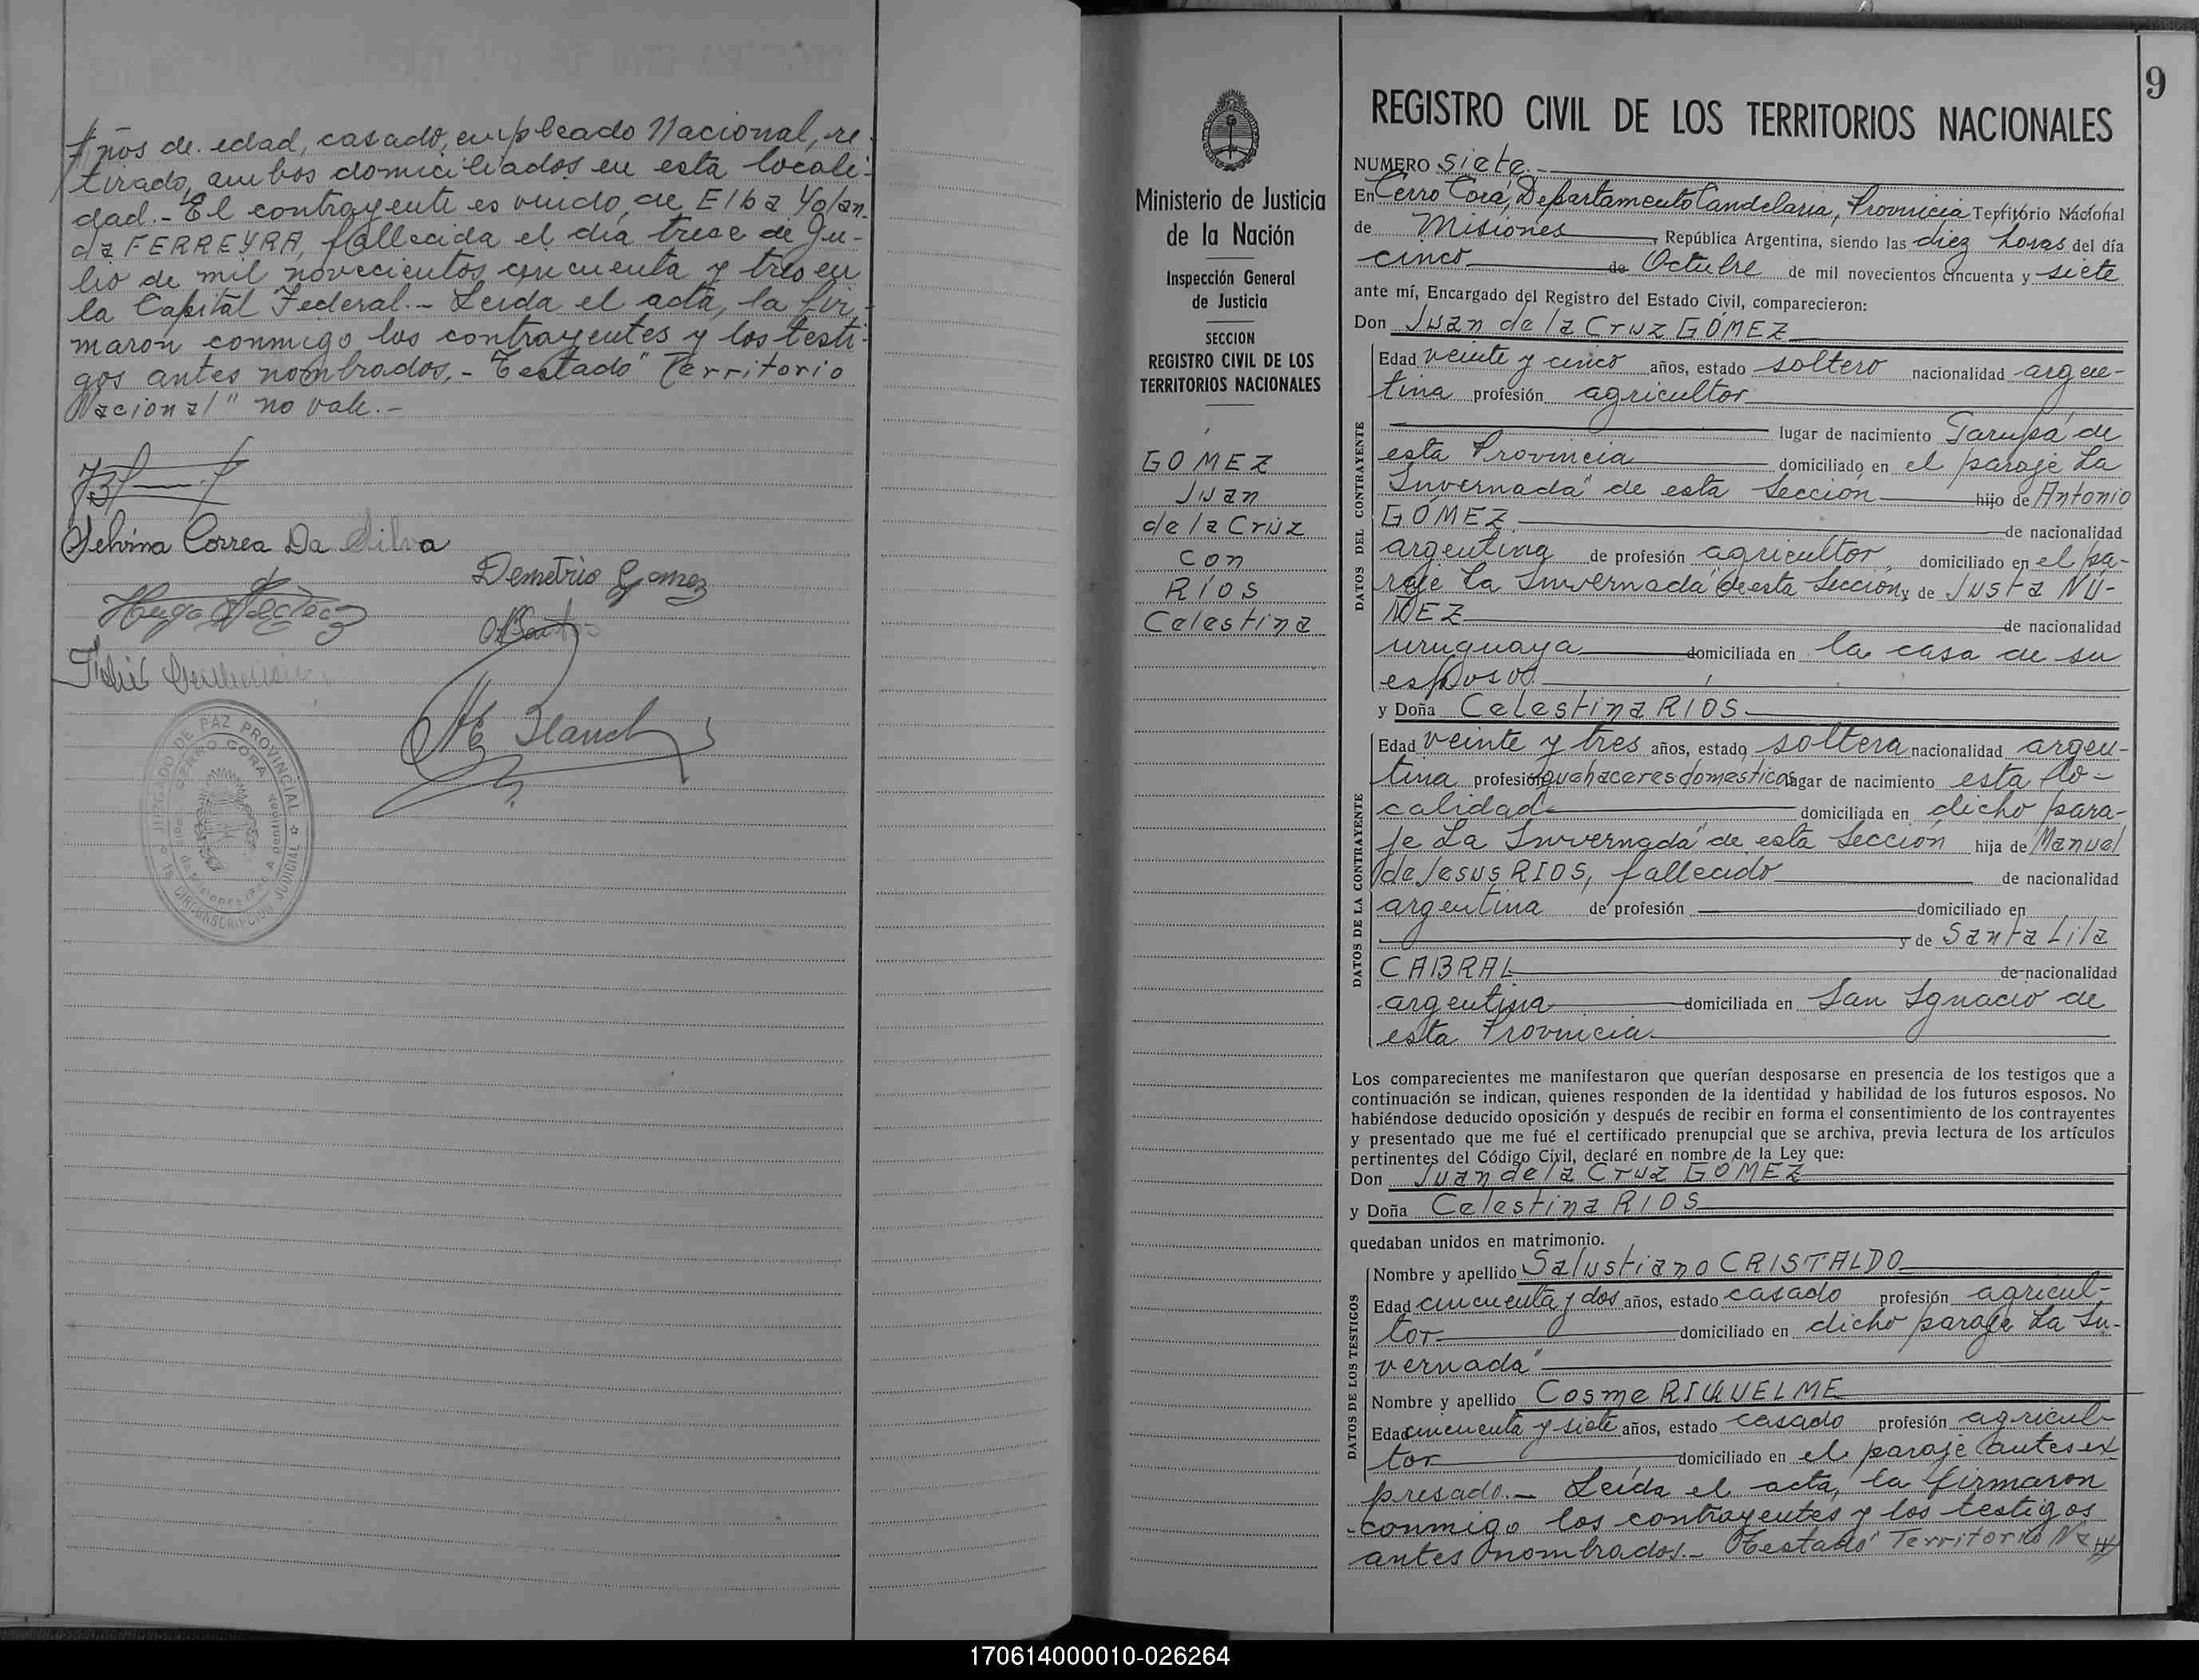 Años de edad, casado, empleado Nacional, re-
tirado, ambos domiciliados en esta locali-
dad.- El contrayente es viudo, de Elba Yolan-
da FERREYRA, fallecida el día trece de Ju-
lio de mil novecientos cincuenta y tres en
la Capital Federal.- Leída el acta, la fir-
maron conmigo los contrayentes y los testi-
gos antes nombrados,- Testado "Territorio
Nacional" no vale.-
Selvina Correa Da Silva
Demetrio Gomez
Hugo
JUZGADO DE PAZ PROVINCIAL
CERRO CORA
CIRCUNSCRIPCION JUDICIAL
9
Ministerio de Justicia
de la Nación
Inspección General
de Justicia
SECCION
REGISTRO CIVIL DE LOS
TERRITORIOS NACIONALES
GOMEZ
Juan
de la Cruz
con
RÍOS
Celestina
REGISTRO CIVIL DE LOS TERRITORIOS NACIONALES
NUMERO siete.-
En Cerro Corá, Departamento Candelaria, Provincia Territorio Nacional
de Misiones, República Argentina, siendo las diez horas del día
cinco de Octubre de mil novecientos cincuenta y siete
ante mí, Encargado del Registro del Estado Civil, comparecieron:
Don Juan de la Cruz GÓMEZ
DATOS DEL CONTRAYENTE
Edad veinte y cinco años, estado soltero nacionalidad argen-
tina profesión agricultor
lugar de nacimiento Garupá de
esta Provincia domiciliado en el paraje La
Invernada" de esta Sección hijo de Antonio
GÓMEZ de nacionalidad
argentina de profesión agricultor, domiciliado en el pa-
raje La Invernada" de esta Sección y de Justa NÚ-
ÑEZ de nacionalidad
uruguaya domiciliada en la casa de su
esposo.
y Doña Celestina RIOS
DATOS DE LA CONTRAYENTE
Edad veinte y tres años, estado soltera nacionalidad argen-
tina profesión quehaceres domesticos lugar de nacimiento esta lo-
calidad domiciliada en dicho para-
je La Invernada" de esta Sección hija de Manuel
de Jesus RIOS, fallecido de nacionalidad
argentina de profesión domiciliado en
y de Santa Lila
CABRAL de nacionalidad
argentina domiciliada en San Ignacio de
esta Provincia.
Los comparecientes me manifestaron que querían desposarse en presencia de los testigos que a
continuación se indican, quienes responden de la identidad y habilidad de los futuros esposos. No
habiéndose deducido oposición y después de recibir en forma el consentimiento de los contrayentes
y presentado que me fué el certificado prenupcial que se archiva, previa lectura de los artículos
pertinentes del Código Civil, declaré en nombre de la Ley que:
Don Juan de la Cruz GOMEZ
y Doña Celestina RIOS
quedaban unidos en matrimonio.
DATOS DE LOS TESTIGOS
Nombre y apellido Salustiano CRISTALDO
Edad cincuenta y dos años, estado casado profesión agricul-
tor domiciliado en dicho paraje La In-
vernada"
Nombre y apellido Cosme RIQUELME
Edad cincuenta y siete años, estado casado profesión agricul-
tor domiciliado en el paraje antes ex
presado.- Leída el acta, la firmaron
conmigo los contrayentes y los testigos
antes nombrados.- Testado "Territorio Na
170614000010-026264